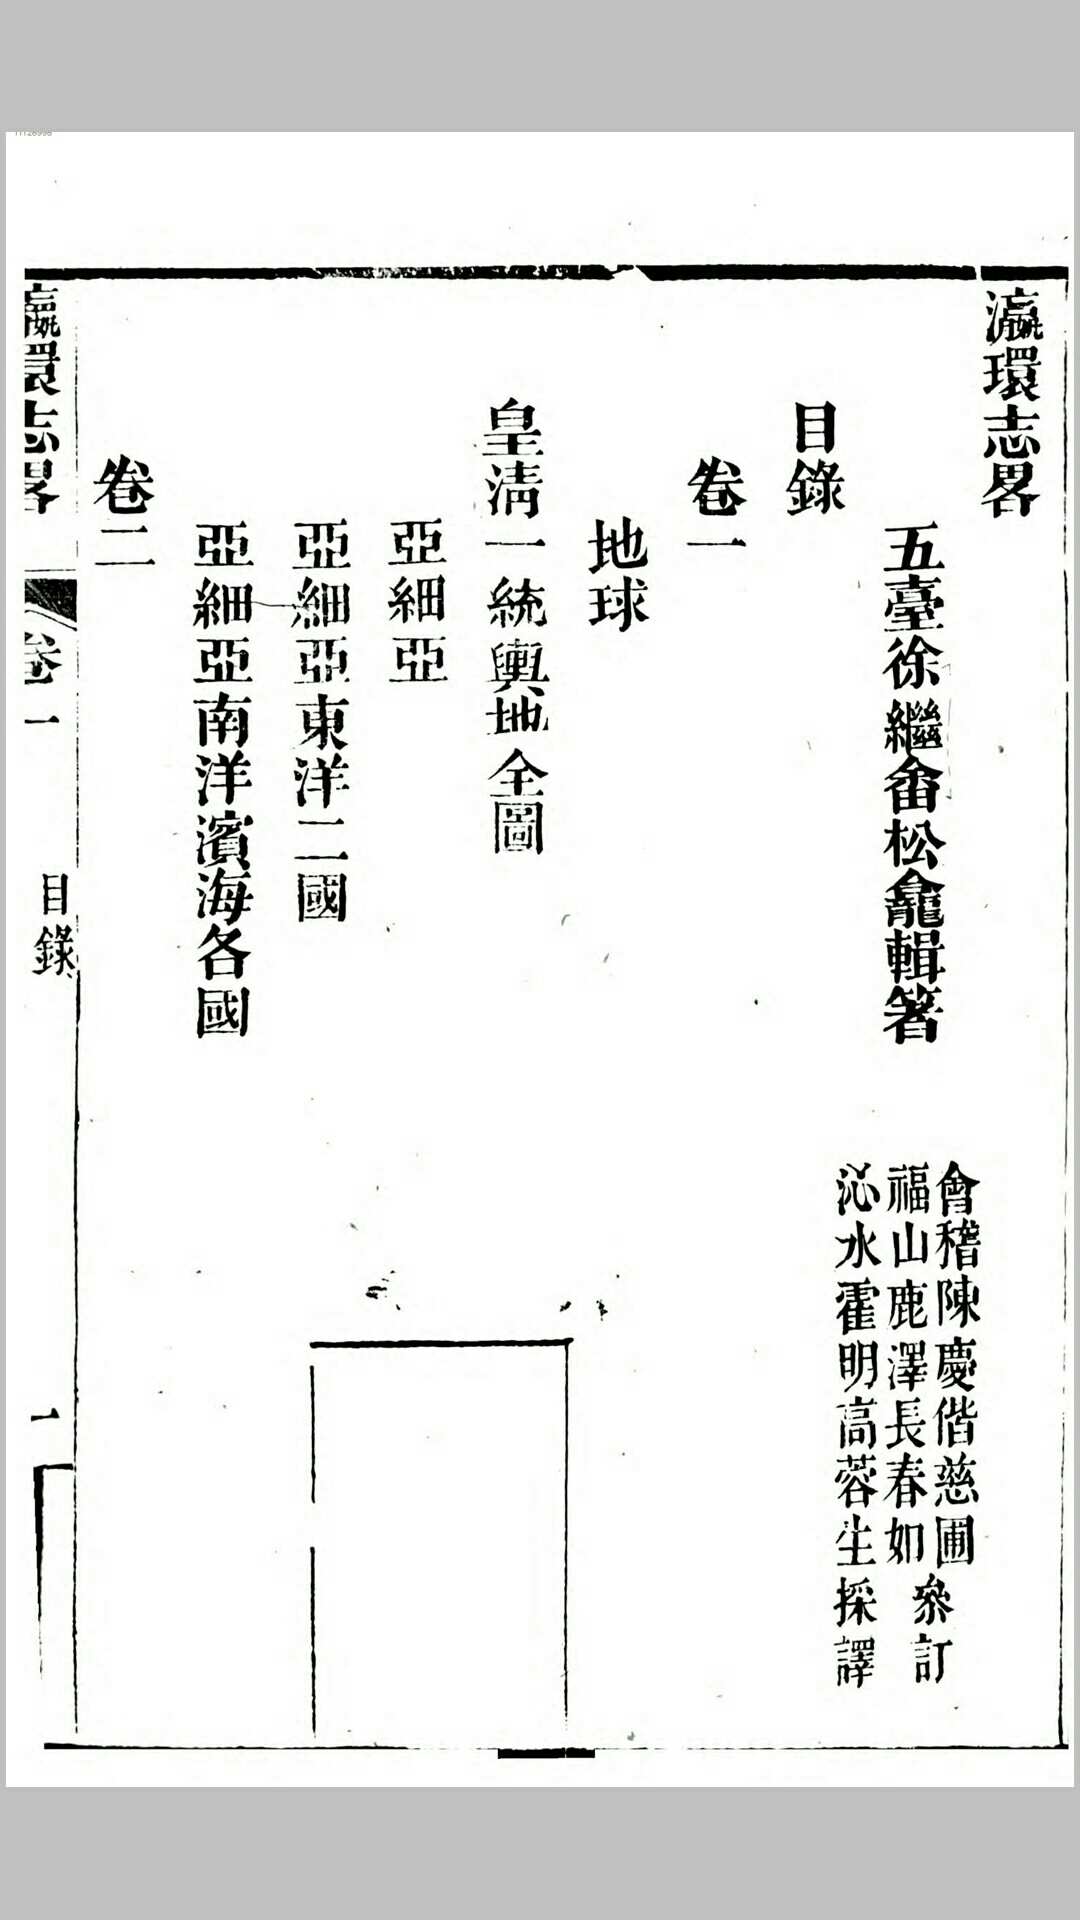 瀛環志畧
五臺徐繼畬松龕輯著
會稽陳慶偕慈圃
福山鹿澤長春如
參訂
沁水霍明高蓉生採譯
目錄
卷一
地球
皇清一統輿地全圖
亞細亞
亞細亞東洋二國
亞細亞南洋濱海各國
卷二
瀛環志畧
卷一
目錄
一